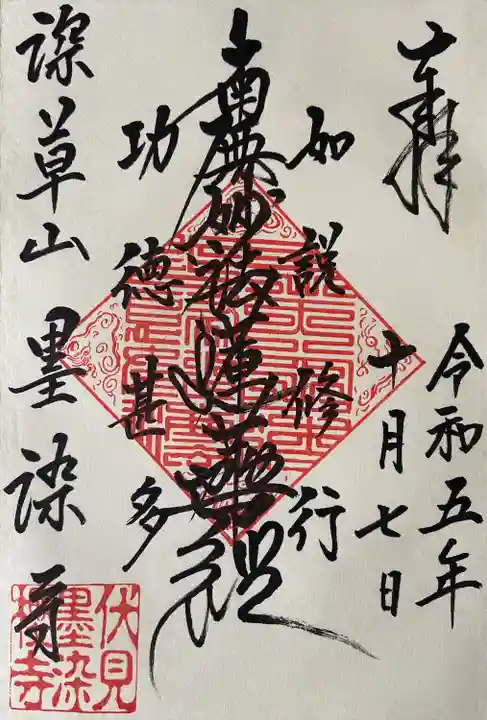 奉拝
令和五年
十月七日
如説修行
南無妙法蓮華経
功徳甚多
深草山 墨染寺
伏見
墨染
桜寺